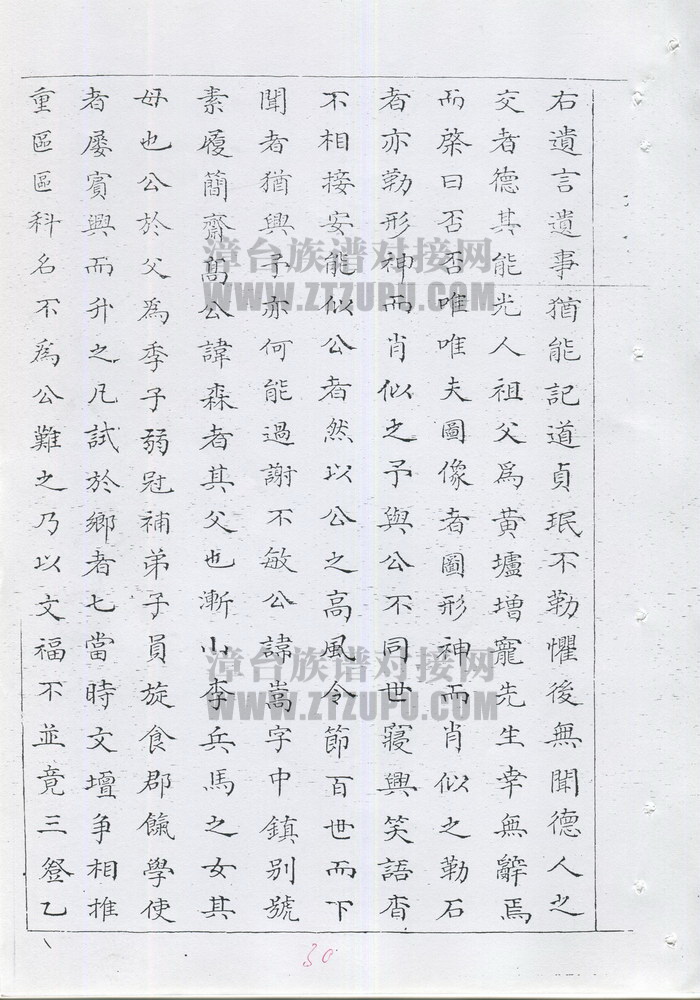 右遺言遺事猶能記道貞珉不勒懼後無聞德人之
交者德其能光人祖父爲黄壚增寵先生幸無辭焉
而棨曰否否唯唯夫圖像者圖形神而肖似之勒石
者亦勒形神而肖似之予與公不同世寢興笑語杳
不相接安能似公者然以公之高風令節百世而下
聞者猶興予亦何能過謝不敏公諱嵩字中鎮别號
素履簡齋蔿公諱森者其父也漸小李兵馬之女其
母也公於父爲季子弱冠補弟子員旋食郡餼學使
者屡賓興而升之凡試於鄉者七當時文壇争相推
重區區科名不爲公難之乃以文福不並竟三登乙
漳台族谱对接网
WWW.ZTZUPU.COM
漳台族谱对接网
WWW.ZTZUPU.COM
30